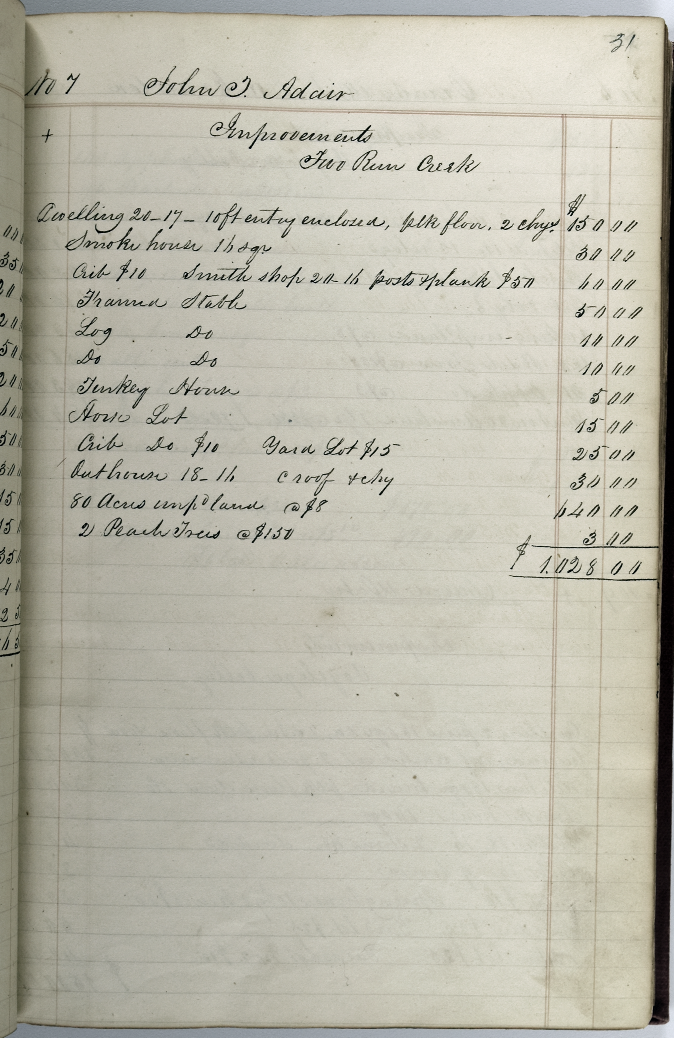 31
No 7 John T. Adair
+ Improvements
Two Run Creek
$
Dwelling 20-17- 10ft entry enclosed, plk floor, 2 chys. 150 00
Smoke house 16 sqr 30 00
Crib $10 Smith shop 20-16 posts & plank $50 60 00
Framed Stable 50 00
Log Do 10 00
Do Do 10 00
Turkey House 5 00
Horse Lot 15 00
Crib Do $10 Yard Lot $15 25 00
Outhouse 18-16 C roof & chy 30 00
80 Acres impd land @ $8 640 00
2 Peach Trees @ $150 3 00
$ 1.028 00